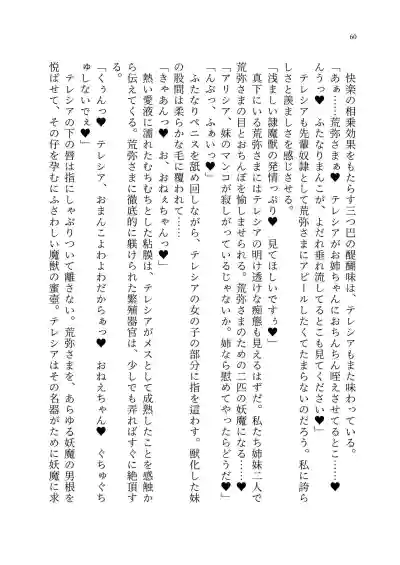 60
快楽の相乗効果をもたらす三つ巴の醍醐味は、テレシアもまた味わっている。
「あぁ……荒弥さまぁ♥　テレシアがお姉ちゃんにおちんちん咥えさせてるとこ……♥
んうっ♥　ふたなりまんこが、よだれ垂れ流してるところも見てください♥」
テレシアも先輩奴隷として荒弥さまにアピールしたくてたまらないのだろう。私に誇ら
しさと羨ましさを感じさせる。
「浅ましい隷魔獣の発情っぷり♥　見てほしいですぅ♥」
真下にいる荒弥さまにはテレシアの明け透けな痴態も見えるはずだ。私たち姉妹二人で
荒弥さまの目とおちんぽを愉しませられる。荒弥さまのための二匹の妖魔になる……♥
「んぷっ、ふぁいっ♥」
「アリシア、妹のマンコが寂しがっているじゃないか。姉なら慰めてやったらどうだ♥」
ふたなりペニスを舐め回しながら、テレシアの女の子の部分に指を這わす。獣化した妹
の股間は柔らかな毛に覆われて……
「きゃあんっ♥　お、おねぇちゃんっ♥」
熱い愛液に濡れたむちむちとした粘膜は、テレシアがメスとして成熟したことを感触か
ら伝えてくる。荒弥さまに徹底的に躾けられた繁殖器官は、少しでも弄ればすぐに絶頂す
る。
「くぅんっ♥　テレシア、おまんこよわよわだからぁっ♥　おねえちゃん♥　ぐちゅぐち
ゅしないでぇ♥」
テレシアの下の唇は指にしゃぶりついて離さない。荒弥さまを、あらゆる妖魔の男根を
悦ばせて、その仔を孕むにふさわしい魔獣の蜜壺。テレシアはその名器がために妖魔に求